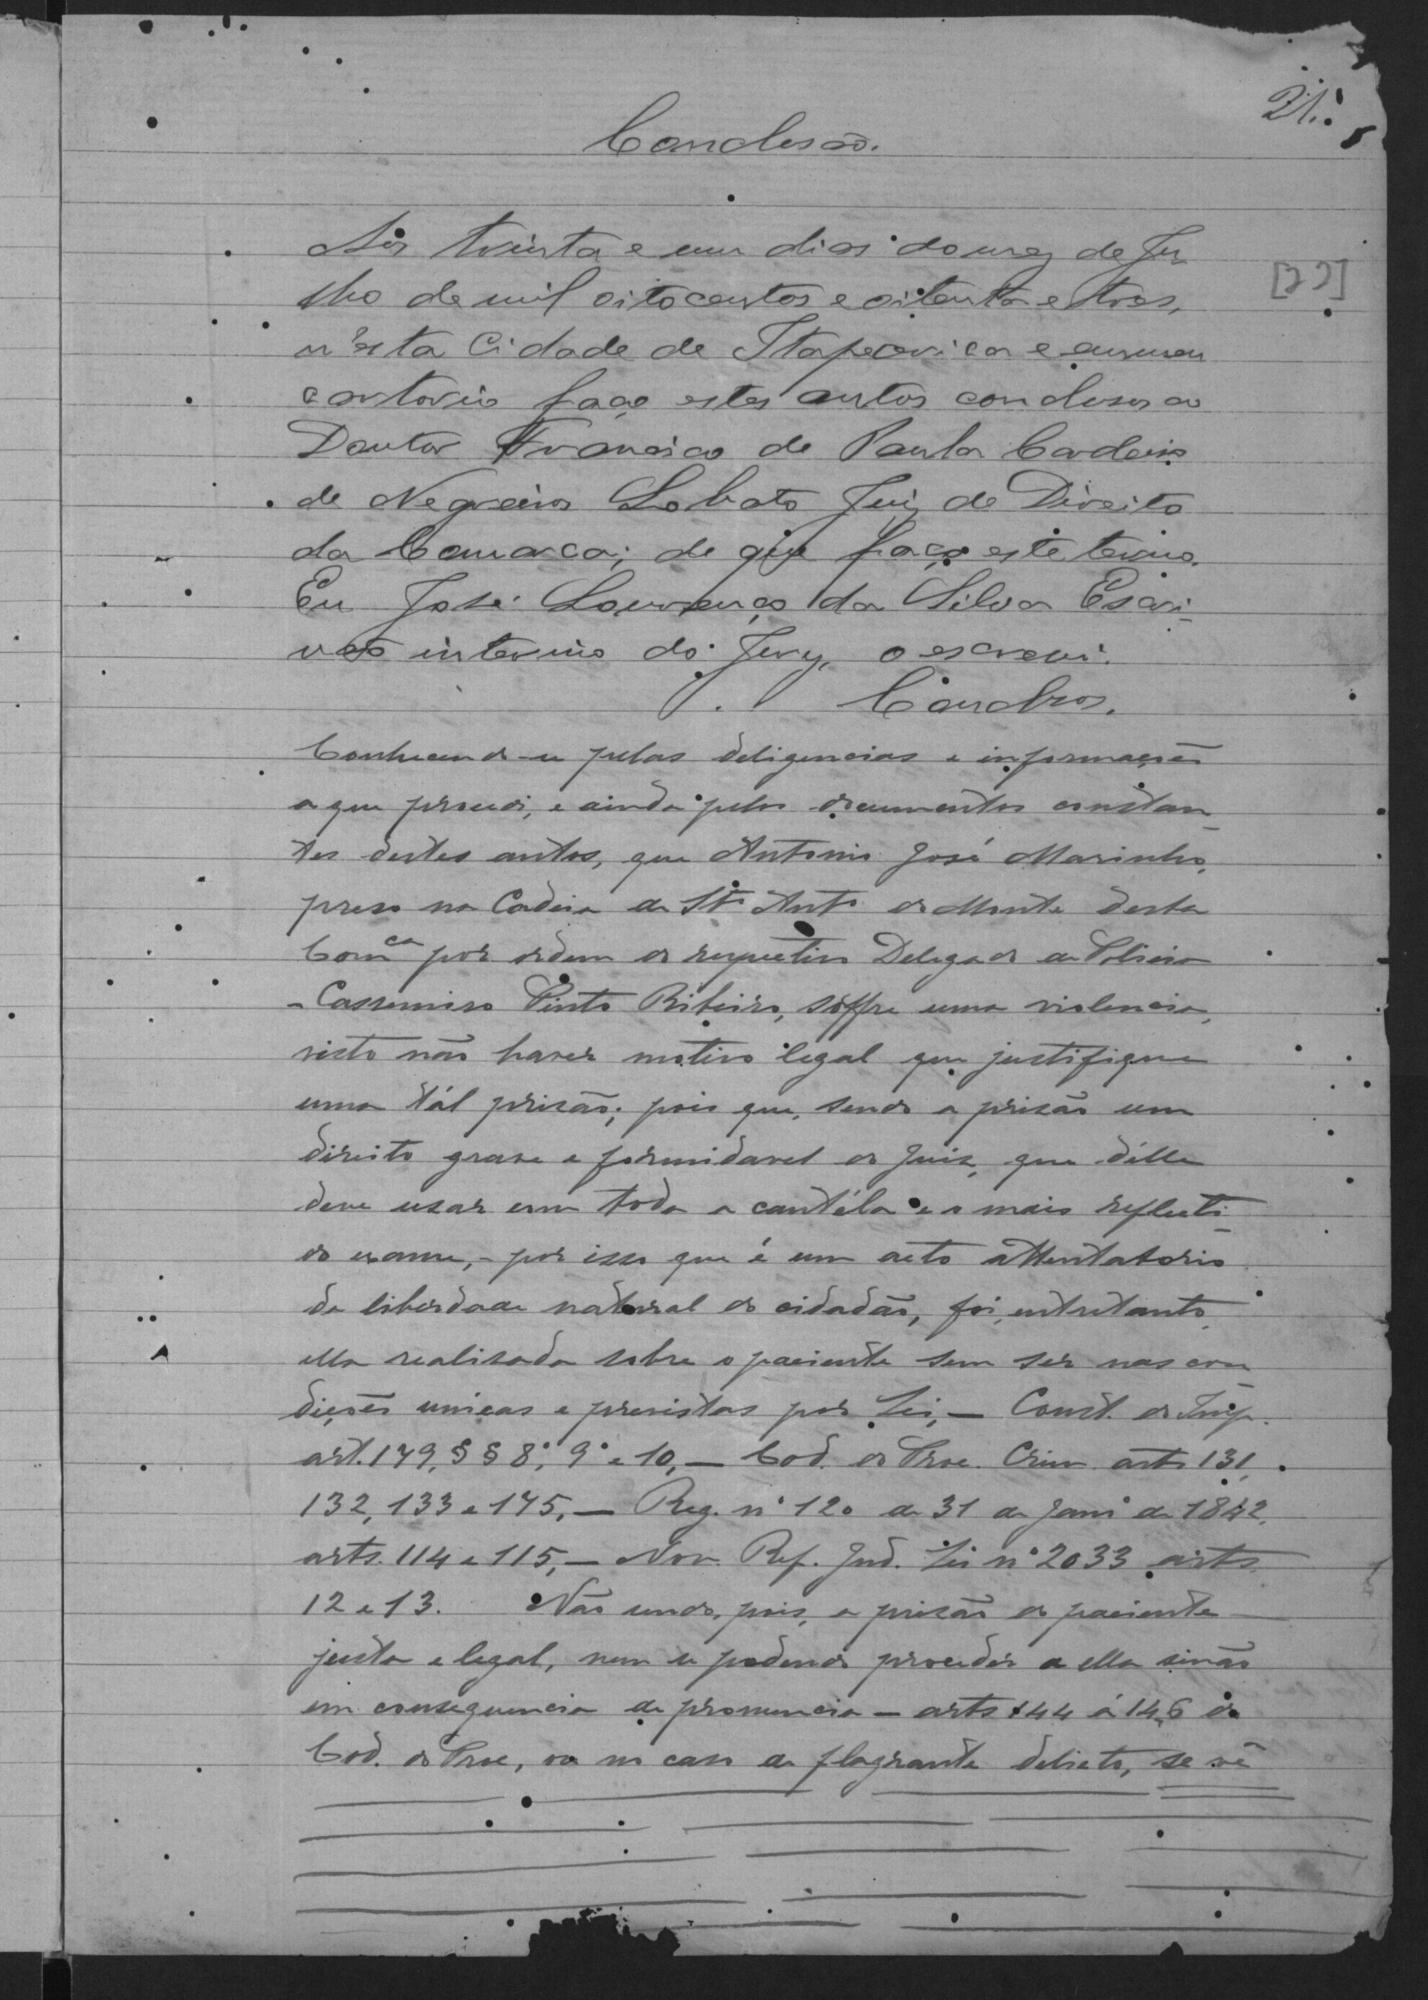 21.
Conclusão.
Aos trinta e um dias do mez de Ju
lho de mil oitocentos e oitenta e tres,
n'esta Cidade de Itapecerica e em meu
cartorio faço estes autos conclusos ao
Doutor Francisco de Paula Cordeiro
de Negreiros Lobato Juiz de Direito
da Comarca; de que faço este termo.
Eu José Lourenço da Silva Escri-
vão interino do Jury, o escrevi.
Conclusos.
[22]
Conhecendo-se pelas deligencias e informações
a que procedi, e ainda pelos documentos constan
tes destes autos, que Antonio José Marinho,
preso na Cadeia de Stº Antº do Monte desta
Comca por ordem do respectivo Delegado de Policia
- Cassemiro Pinto Ribeiro, soffre uma violencia,
visto não haver motivo legal que justifique
uma tál prisão; pois que, sendo a prisão um
direito grave e formidavel do Juiz, que délle
deve usar com toda a cautéla e o mais reflecti-
do exame, - por isso que é um acto attentatorio
da liberdade natural do cidadão, foi, entretanto,
ella realisada sobre o paciente sem ser nas con
dições unicas e previstas por Lei, — Const. do Imp.
art. 179, §§ 8º, 9º e 10, — Cod. do Proc. Crim. arts 131,
132, 133 e 175, — Reg. nº 120 de 31 de Janº de 1842,
arts. 114 e 115, — Nov. Ref. Jud. Lei nº 2033 arts.
12 e 13. Não sendo, pois, a prisão do paciente
justa e legal, nem se podendo proceder a ella sinão
em consequencia de pronuncia — arts 144 á 146 do
Cod. do Proc, ou no caso de flagrante delicto, se vê